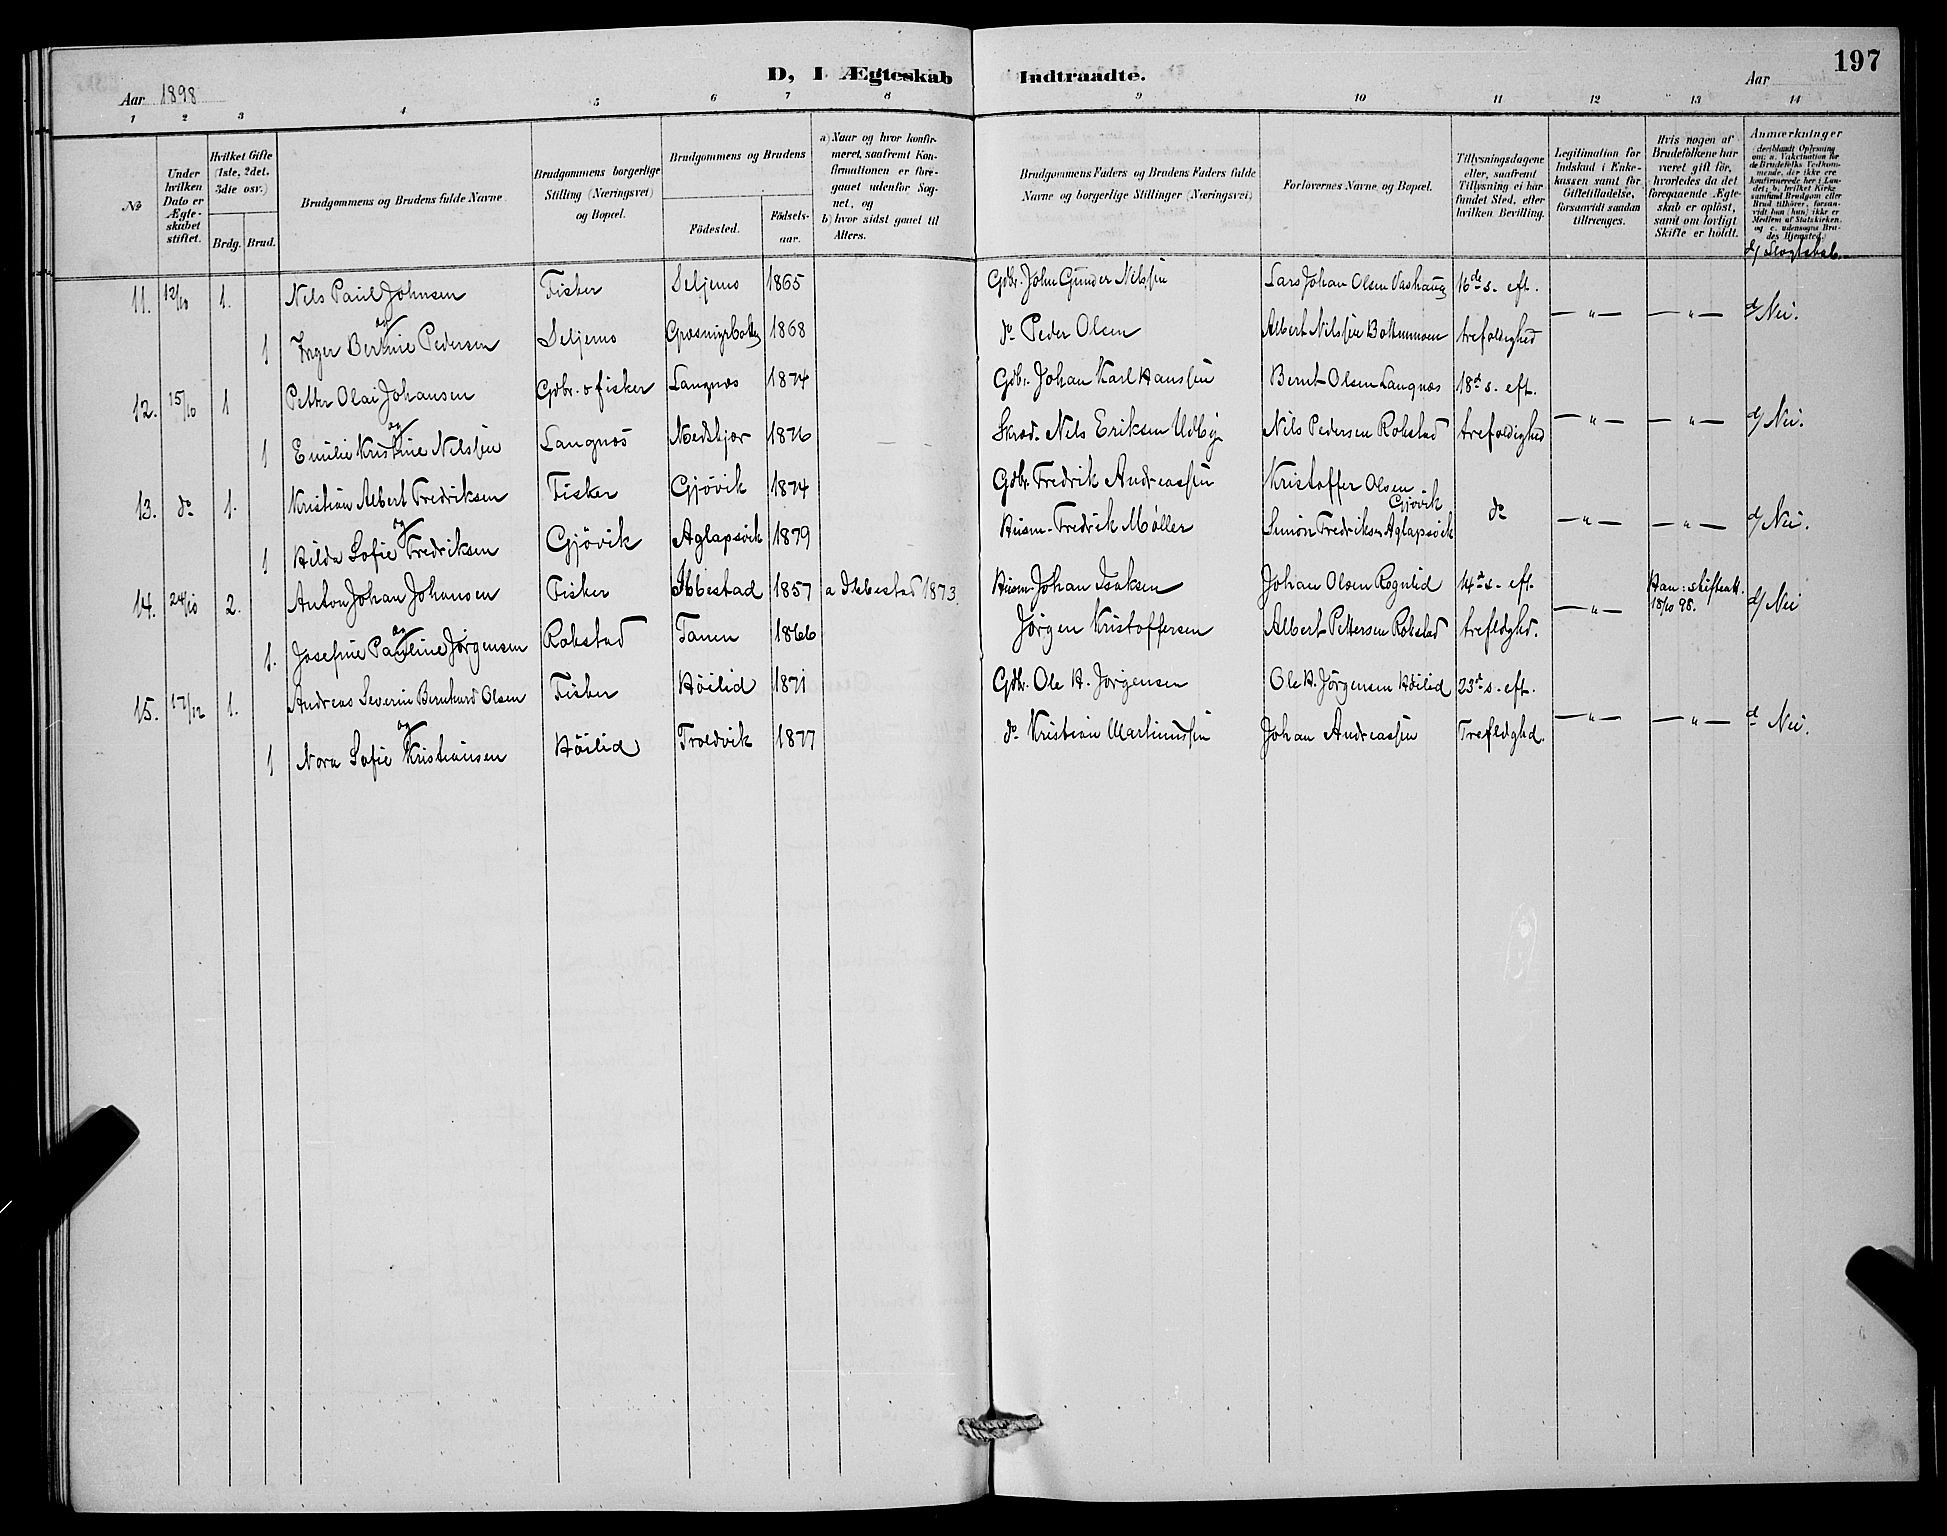 197
D, I Ægteskab Indtraadte.
Aar 1898 Aar
1 2 3 4 5 6 7 8 9 10 11 12 13 14
№
Under hvilken Dato er Ægteskabet stiftet.
Hvilket Gifte (1ste, 2det, 3die osv.)
Brdg. Brud.
Brudgommens og Brudens fulde Navne.
Brudgommens borgerlige Stilling (Næringsvei) og Bopæl.
Brudgommens og Brudens
Fødested. Fødselsaar.
a) Naar og hvor konfirmeret, saafremt Konfirmationen er foregaaet udenfor Sognet, og
b) hvor sidst gaaet til Alters.
Brudgommens Faders og Brudens Faders fulde Navne og borgerlige Stillinger (Næringsvei)
Forlovernes Navne og Bopæl.
Tillysningsdagene eller, saafremt Tillysning ei har fundet Sted, efter hvilken Bevilling.
Legitimation for Indskud i Enkekassen samt for Giftetilladelse, forsaavidt saadan tiltrænges.
Hvis nogen af Brudefolkene har været gift før, hvorledes da det foregaaende Ægteskab er opløst, samt om lovligt Skifte er holdt.
Anmærkninger
(deriblandt Oplysning om: a. Vakcination for de Brudefolks Vedkommende, der ikke ere konfirmerede her i Landet; b. hvilket Kirkesamfund Brudgom eller Brud tilhører, forsaavidt han (hun) ikke er Medlem af Statskirken, og c. udensogns Brudes Hjemsted.)
d/ Slegtskab.
11. 12/10 1. Nels Paul Johnsen Fisker Seljenes 1865 Gdbr. John Gunder Nilssen Lars Johan Olsen Vashaug 16de s. eft. — " — — " — d/ Nei.
og
1 Inger Bertine Pedersen Seljenes Græsmyrbotten 1868 do Peder Olsen Albert Nilssen Bottenmoen trefoldighed
12. 15/10 1 Petter Olai Johansen Gdbr. & fisker Langnes 1874 Gdbr. Johan Karl Hanssen Bernt Olsen Langnæs 18de s. eft. — " — — " — d/ Nei.
og
1 Emilie Kristine Nelssen Langnæs Medkjær 1876 Skræd. Nils Eriksen Udby Nils Pedersen Rokstad trefoldighed
13. do 1. Kristian Albert Fredriksen Fisker Gjøvik 1874 Gdbr. Fredrik Andreassen Kristoffer Olsen Gjøvik do — " — — " — d/ Nei.
og
1 Hilda Sofie Fredriksen Gjøvik Aglapsvik 1879 Husm. Fredrik Møller Simon Fredriksen Aglapsvik
14. 24/10 2. Anton Johan Johansen Fisker Ibbestad 1857 a Ibbestad 1873. Husm. Johan Isaksen Johan Olsen Rognlid 14de s. eft. — " — Han: skifteatt. 15/10 98. d/ Nei
og
1. Josefine Pauline Jørgensen Rokstad Tanen 1866 Jørgen Kristoffersen Albert Pettersen Rokstad trefldghd.
15. 17/12 1. Andreas Severin Bernhard Olsen Fisker Høilid 1871 Gdbr. Ole H. Jørgensen Ole H. Jørgensen Høilid 23de s. eft. — " — — " — d Nei.
og
1 Nora Sofie Kristiansen Høilid Troldvik 1877 do Kristian Martinussen Johan Andreassen Trefldghd.